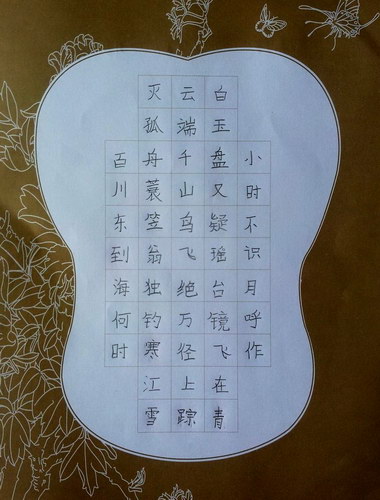 小时不识月呼作
白玉盘又疑瑶台镜飞在青
云端千山鸟飞绝万径上踪
灭孤舟蓑笠翁独钓寒江雪
百川东到海何时